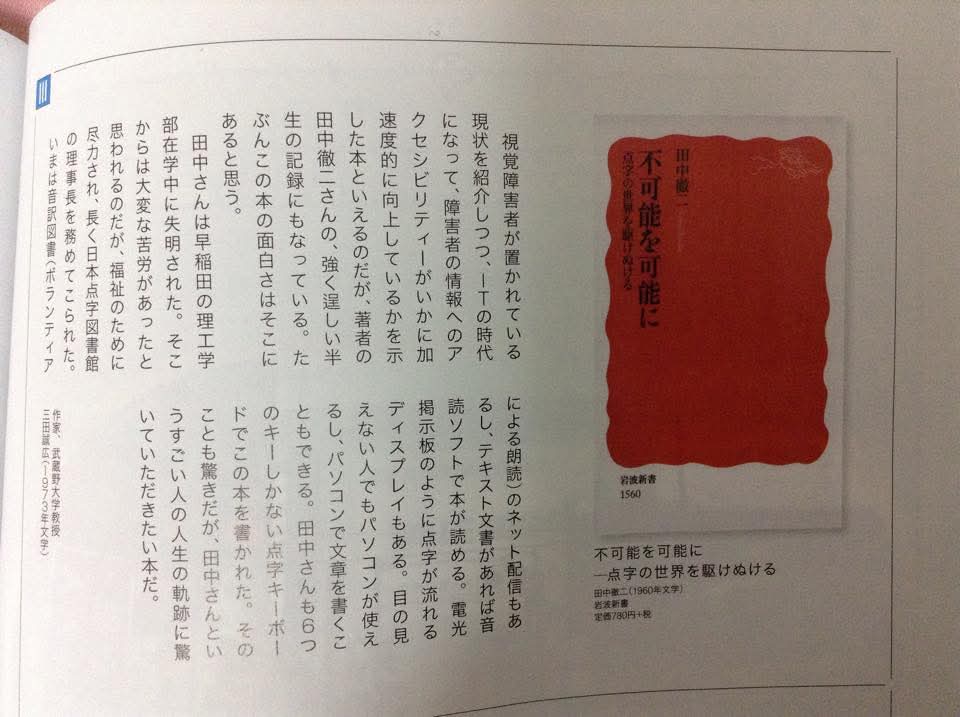 田中徹二
不可能を可能に
点字の世界を駆けぬける
岩波新書
1560
不可能を可能に
―点字の世界を駆けぬける
田中徹二(1960年文学)
岩波新書
定価780円+税
視覚障害者が置かれている
現状を紹介しつつ、ITの時代
になって、障害者の情報へのア
クセシビリティーがいかに加
速度的に向上しているかを示
した本といえるのだが、著者の
田中徹二さんの、強く逞しい半
生の記録にもなっている。た
ぶんこの本の面白さはそこに
あると思う。
田中さんは早稲田の理工学
部在学中に失明された。そこ
からは大変な苦労があったと
思われるのだが、福祉のために
尽力され、長く日本点字図書館
の理事長を務めてこられた。
いまは音訳図書(ボランティア
による朗読)のネット配信もあ
るし、テキスト文書があれば音
読ソフトで本が読める。電光
掲示板のように点字が流れる
ディスプレイもある。目の見
えない人でもパソコンが使え
るし、パソコンで文章を書くこ
ともできる。田中さんも6つ
のキーしかない点字キーボー
ドでこの本を書かれた。その
ことも驚きだが、田中さんとい
うすごい人の人生の軌跡に驚
いていただきたい本だ。
作家、武蔵野大学教授
三田誠広(1973年文学)